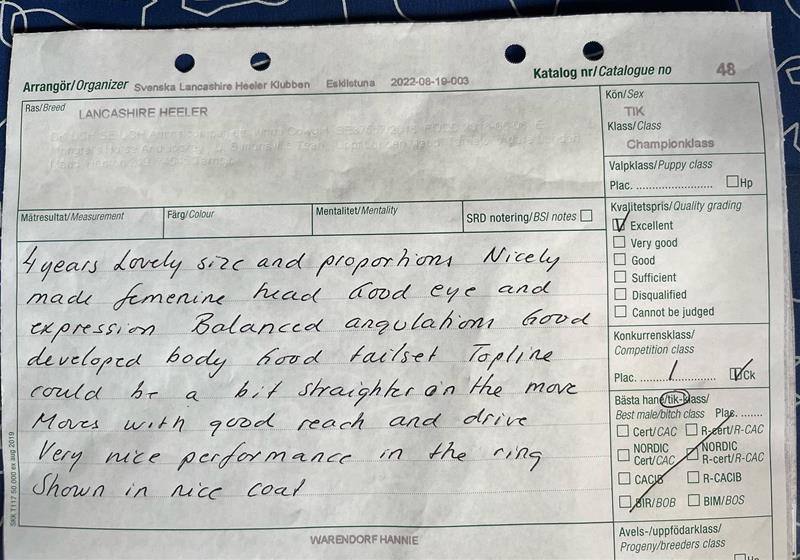 Arrangör/Organizer Svenska Lancashire Heeler Klubben Eskilstuna 2022-08-19-003 Katalog nr/Catalogue no 48
Ras/Breed LANCASHIRE HEELER
Kön/Sex
TIK
Klass/Class
Championklass
Valpklass/Puppy class
Plac. Hp
Mätresultat/Measurement Färg/Colour Mentalitet/Mentality SRD notering/BSI notes
Kvalitetspris/Quality grading
Excellent
Very good
Good
Sufficient
Disqualified
Cannot be judged
4 years Lovely size and proportions Nicely
made femenine head Good eye and
expression Balanced angulations Good
developed body Good tailset Topline
could be a bit straighter on the move
Moves with good reach and drive
Very nice performance in the ring
Shown in nice coat
Konkurrensklass/
Competition class
Plac. 1 Ck
Bästa hane/tik-klass/
Best male/bitch class Plac.
Cert/CAC R-cert/R-CAC
NORDIC Cert/CAC NORDIC R-cert/R-CAC
CACIB R-CACIB
BIR/BOB BIM/BOS
Avels-/uppfödarklass/
Progeny/breeders class
Hp
WARENDORF HANNIE
SKK T117 50.000 ex aug 2019